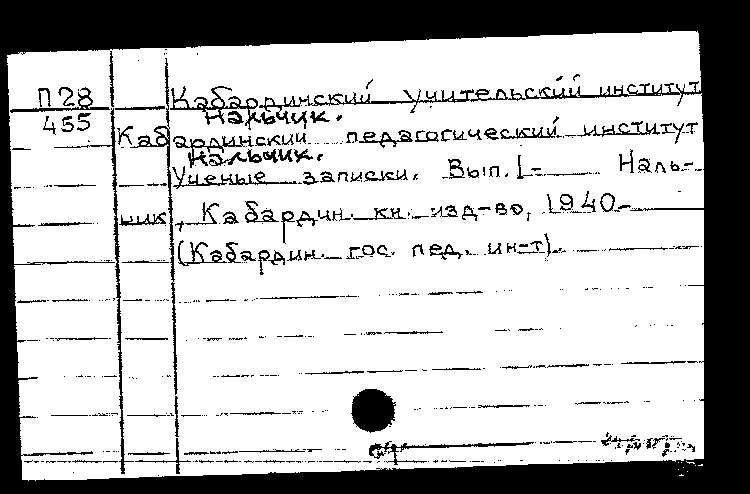 П28 Кабардинский учительский институт
Нальчик.
455 Кабардинский педагогический институт
Нальчик.
Ученые записки. Вып. 1- Наль-
чик, Кабардин. кн. изд-во, 1940-
(Кабардин. гос. пед. ин-т).